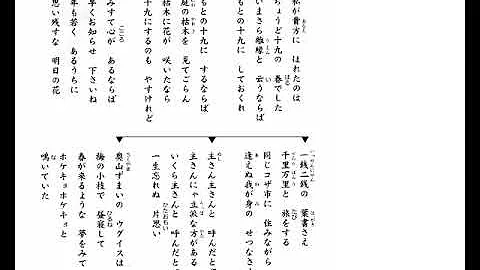 私が貴方に ほれたのは
ちょうど十九の 春でした
いまさら離縁と 云うならば
もとの十九に しておくれ
もとの十九に するならば
庭の枯木を 見てごらん
枯木に花が 咲いたなら
十九にするのも やすけれど
みすて心が あるならば
早くお知らせ 下さいね
年も若く あるうちに
思い残すな 明日の花
一銭二銭の 葉書さえ
千里万里と 旅をする
同じコザ市に 住みながら
逢えぬ我が身の せつなさ
主さん主さんと 呼んだと
主さんにゃ立派な 方がある
いくら主さんと 呼んだと
一生忘れぬ 片思い
奥山ずまいの ウグイスは
梅の小枝で 昼寝して
春が来るような 夢をみて
ホケキョホケキョと
鳴いていた